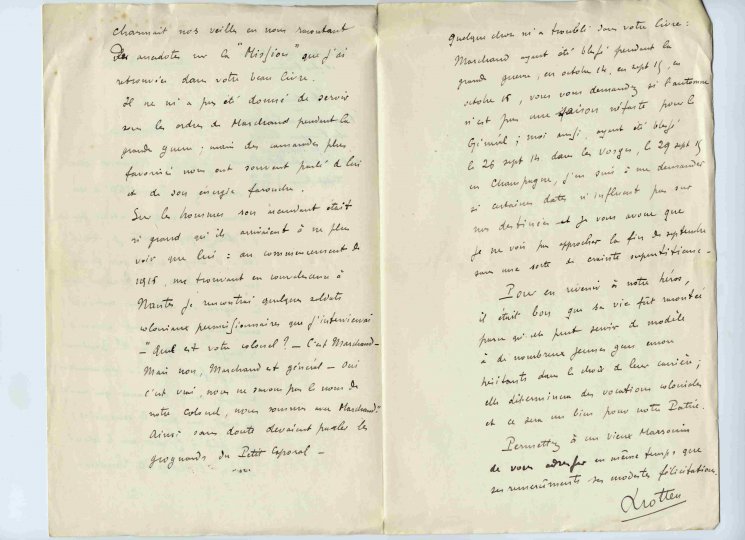 charmait nos veilles en nous racontant
des anecdotes sur la "Mission" que j'ai
retrouvées dans votre beau livre.
Il ne m'a pas été donné de servir
sous les ordres de Marchand pendant la
grande guerre ; mais des camarades plus
favorisés nous ont souvent parlé de lui
et de son énergie farouche.
Sur les hommes son ascendant était
si grand qu'ils arrivaient à ne plus
voir que lui : au commencement de
1915, me trouvant en convalescence à
Nantes je rencontrai quelques soldats
coloniaux permissionnaires que j'interviewai
- "Quel est votre colonel ? - C'est Marchand -
Mais non, Marchand est général - Oui
c'est vrai, nous ne savons pas le nom de
notre colonel, nous sommes avec Marchand."
Ainsi sans doute devaient parler les
grognards du Petit Caporal -
Quelque chose m'a troublé dans votre livre :
Marchand ayant été blessé pendant la
grande guerre, en octobre 14, en sept 15, en
octobre 18, vous vous demandez si l'automne
n'est pas une saison néfaste pour le
Général ; moi aussi, ayant été blessé
le 26 sept 14 dans les Vosges, le 29 sept 15
en Champagne, j'en suis à me demander
si certaines dates n'influent pas sur
nos destinées et je vous avoue que
je ne vois pas approcher la fin de septembre
sans une sorte de crainte superstitieuse -
Pour en revenir à notre héros,
il était bon que sa vie fût racontée
parce qu'elle peut servir de modèle
à de nombreux jeunes gens encore
hésitants dans le choix de leur carrière ;
elle déterminera des vocations coloniales
et ce sera un bien pour notre Patrie.
Permettez à un vieux Marsouin
de vous adresser en même temps que
ses remerciements ses modestes félicitations.